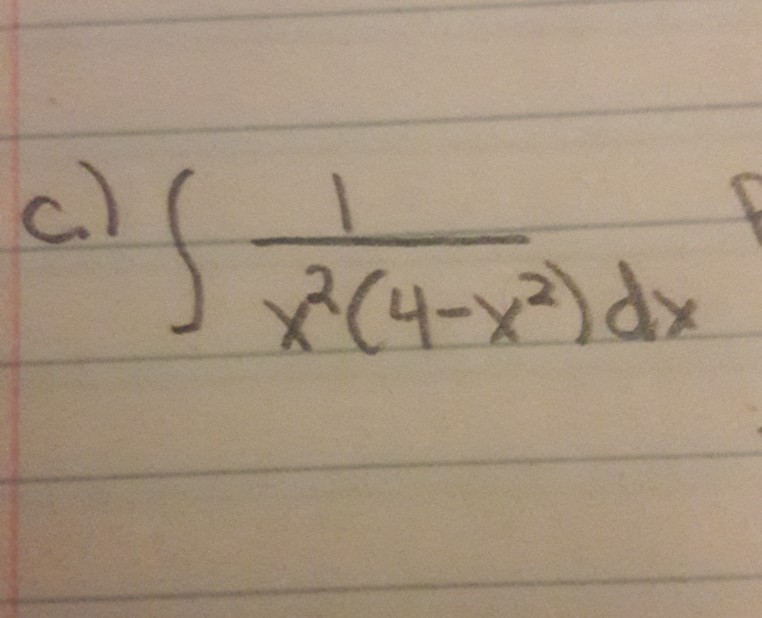 c.) ∫ 1/(x²(4-x²)) dx